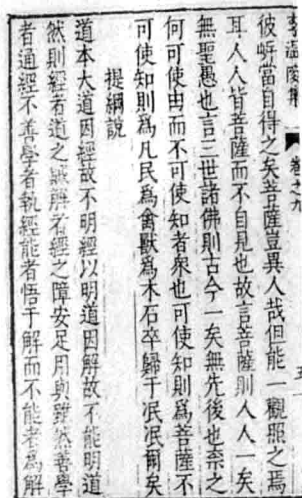 李溫陵集 卷之九 五
彼岍當自得之矣菩薩豈異人哉但能一觀照之焉
耳人人皆菩薩而不自見也故言菩薩則人人一矣
無聖愚也言三世諸佛則古今一矣無先後也奈之
何可使由而不可使知者衆也可使知則爲菩薩不
可使知則爲凡民爲禽獸爲木石卒歸于泯泯爾矣
提綱說
道本大道因經故不明經以明道因解故不能明道
然則經者道之賊解者經之障安足用與雖然善學
者通經不善學者執經能者悟于解而不能者爲解